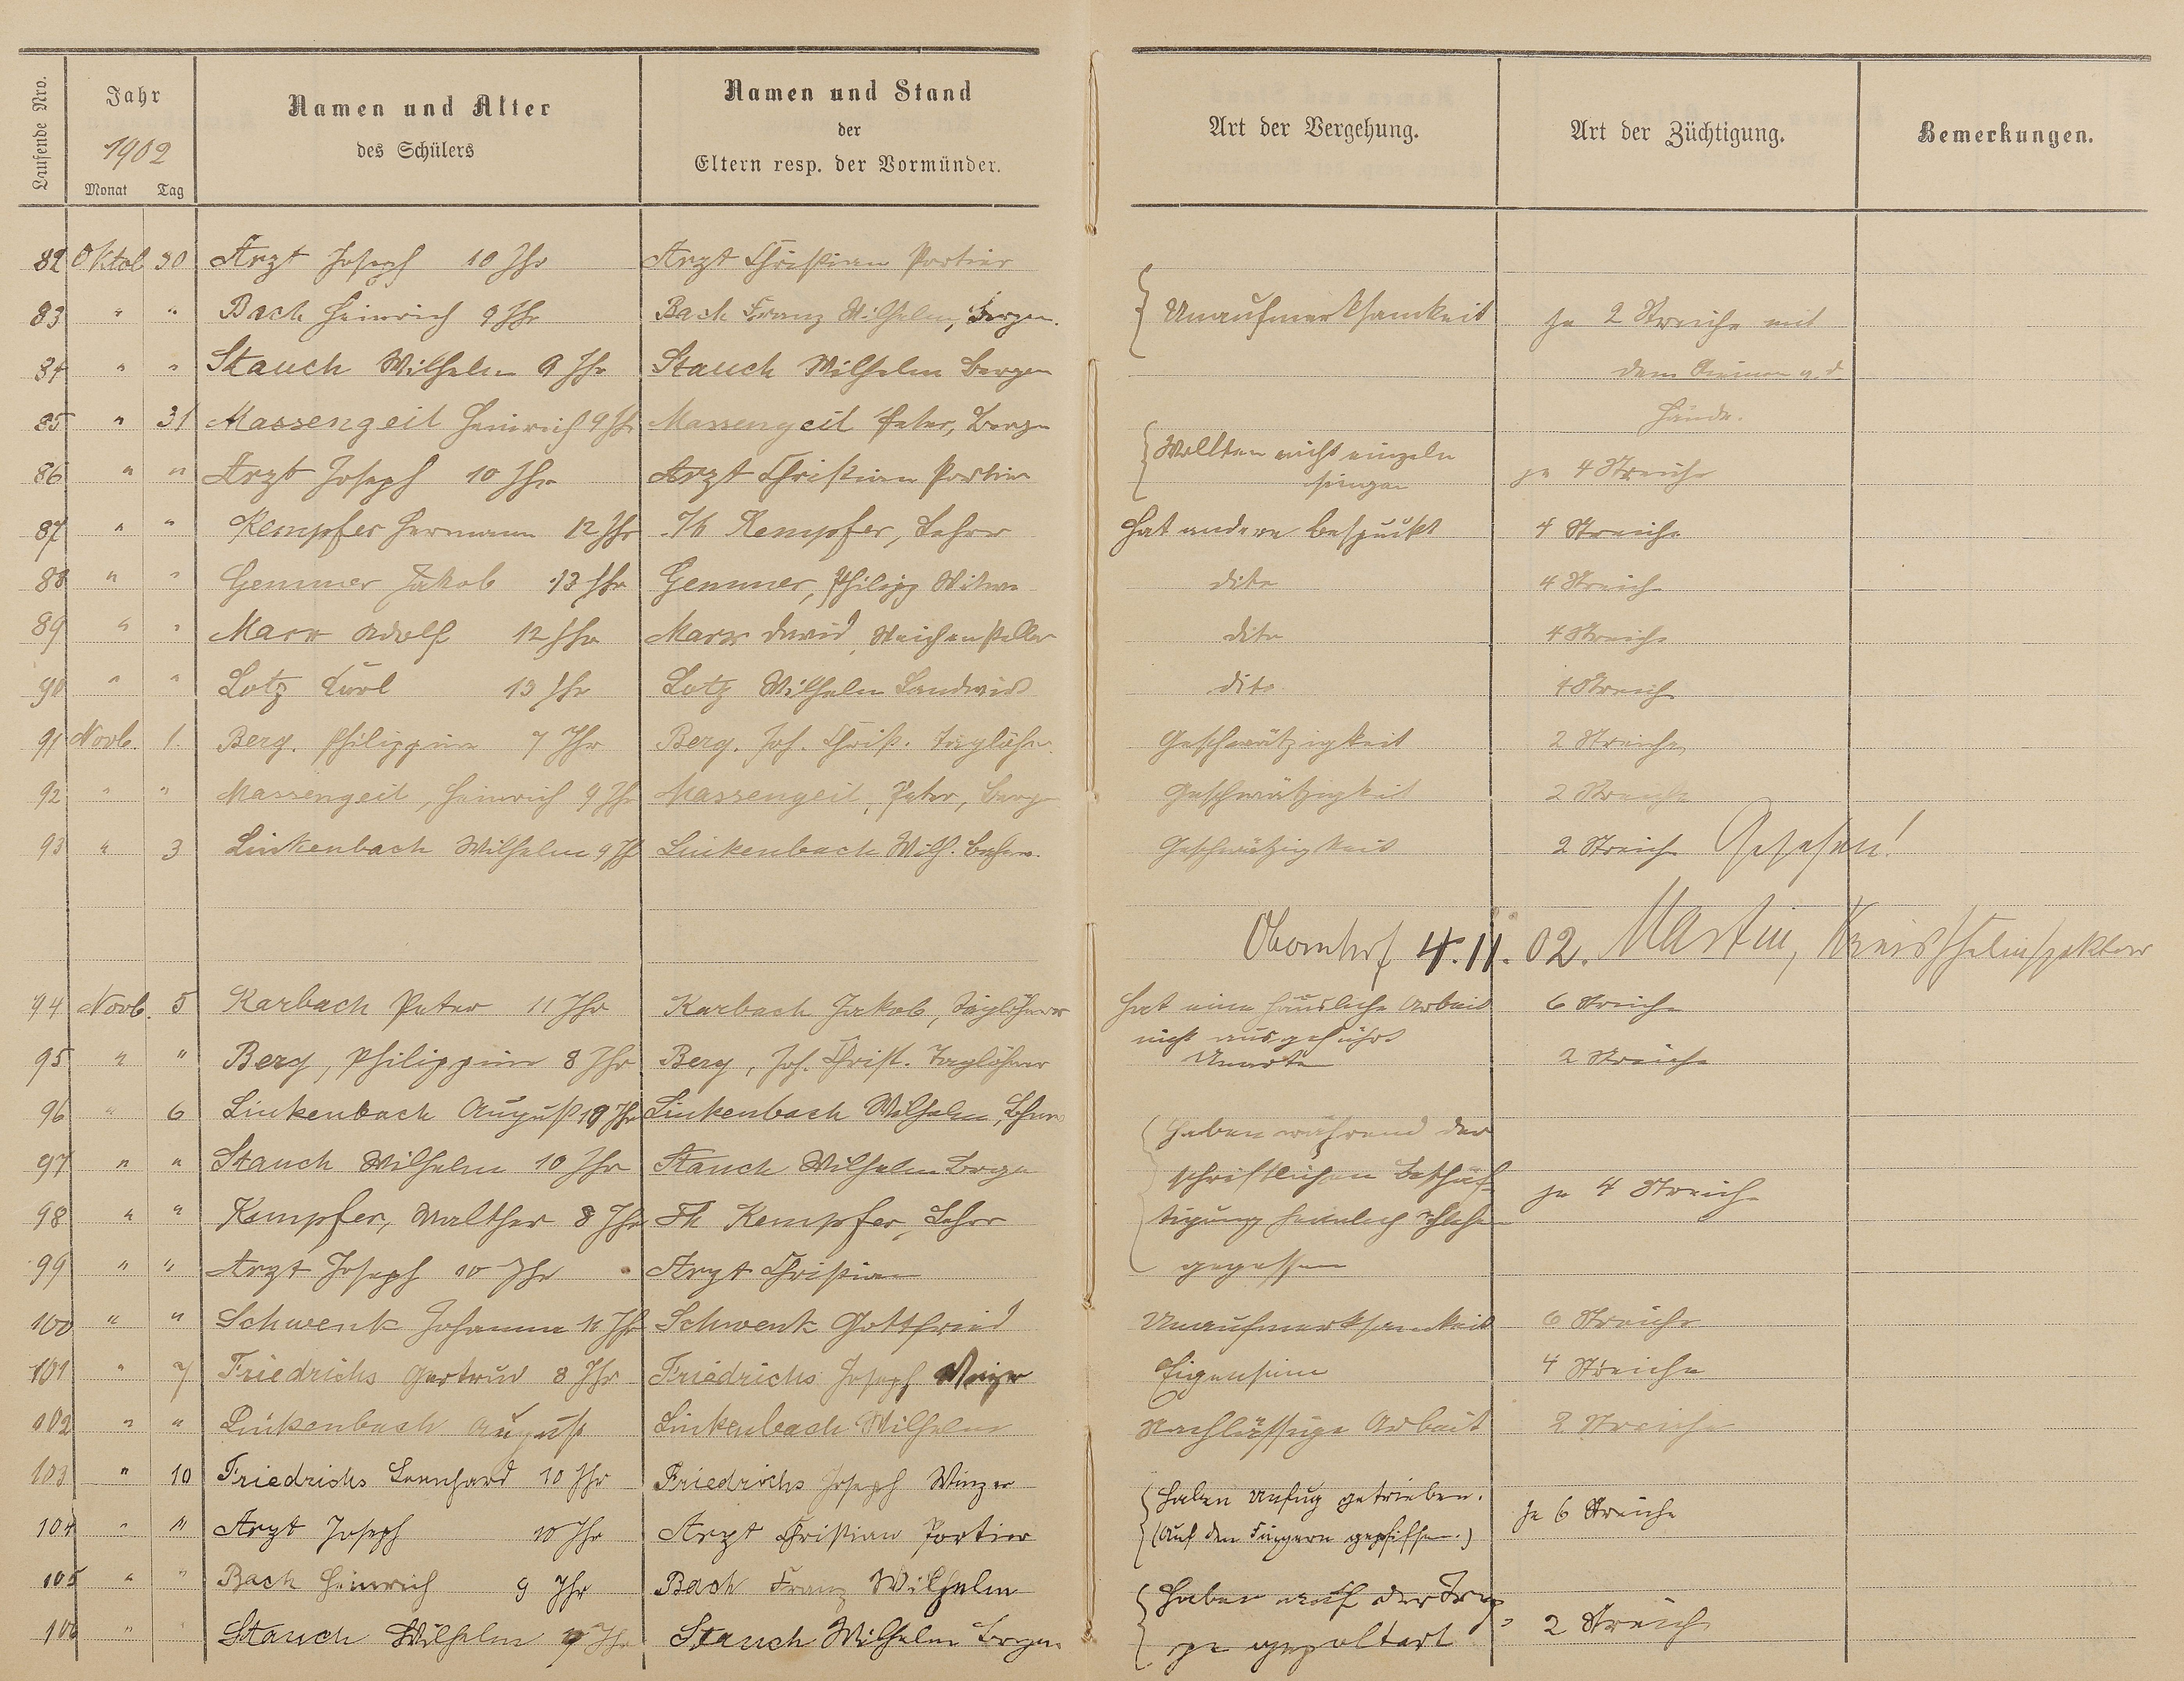 Laufende Nro.
Jahr
1902
Monat Tag
Namen und Alter
des Schülers
Namen und Stand
der
Eltern resp. der Vormünder.
Art der Vergehung.
Art der Züchtigung.
Bemerkungen.
82 Oktob 30 Arzt Joseph 10 Jhr Arzt Christian Portier
83 " " Bach Heinrich 9 Jhr Bach Franz Wilhelm, Bergm. Unaufmerksamkeit je 2 Streiche mit
84 " " Stauch Wilhelm 9 Jhr Stauch Wilhelm Bergm dem Riemen a. d.
85 " 31 Massengeil Heinrich 9 Jhr Massengeil Peter, Bergm Hände.
Wollten nicht einzeln
86 " " Arzt Joseph 10 Jhr Arzt Christian Portier singen je 4 Streiche
87 " " Kempfer Hermann 12 Jhr Th Kempfer, Lehrer Hat andere bespuckt 4 Streiche
88 " " Gemmer Jakob 13 Jhr Gemmer, Philipp Witwe dito 4 Streich
89 " " Marx Adolf 12 Jhr Marx David, Weichensteller dito 4 Streiche
90 " " Lotz Karl 13 Jhr Lotz Wilhelm Landwirt dito 4 Streich
91 Novb. 1. Berg. Philippine 7 Jhr Berg. Joh. Christ. Taglöhn. Geschwätzigkeit 2 Streiche
92 " " Massengeil, Heinrich 9 Jhr Massengeil, Peter, Bergm Geschwätzigkeit 2 Streiche
93 " 3 Linkenbach Wilhelm 9 Jhr Linkenbach Wilh. Geschwätzigkeit 2 Streiche Gesehen!
Obernhof 4. 11. 02. Martin, Kreisschulinspektor
94 Novb. 5 Karbach Peter 11 Jhr Karbach Jakob, Taglöhner Hat eine häusliche Arbeit 6 Streiche
nicht ausgeführt
95 " " Berg, Philippine 8 Jhr Berg, Joh. Christ. Taglöhner Unarten 2 Streiche
96 " 6 Linkenbach August 10 Jhr Linkenbach Wilhelm,
Haben während der
97 " " Stauch Wilhelm 10 Jhr Stauch Wilhelm Bergm schriftlichen Beschäf-
je 4 Streiche
98 " " Kempfer, Walther 8 Jhr Th Kempfer, Lehrer tigung heimlich Schlehen
99 " " Arzt Joseph 10 Jhr Arzt Christian gegessen
100 " " Schwenk Johanna 11 Jhr Schwenk Gottfried Unaufmerksamkeit 6 Streiche
101 " 7 Friedrichs Gertrud 8 Jhr Friedrichs Joseph Winzer Eigensinn 4 Streiche
102 " " Linkenbach August Linkenbach Wilhelm Nachlässige Arbeit 2 Streiche
103 " 10 Friedrichs Leonhard 10 Jhr Friedrichs Joseph Winzer Haben Unfug getrieben.
104 " " Arzt Joseph 10 Jhr Arzt Christian Portier (Auf den Fingern gepfiffen.) Je 6 Streiche
105 " " Bach Heinrich 9 Jhr Bach Franz Wilhelm Haben auf der Trep-
106 " " Stauch Wilhelm 9 Jhr Stauch Wilhelm Bergm pe gepoltert 2 Streich